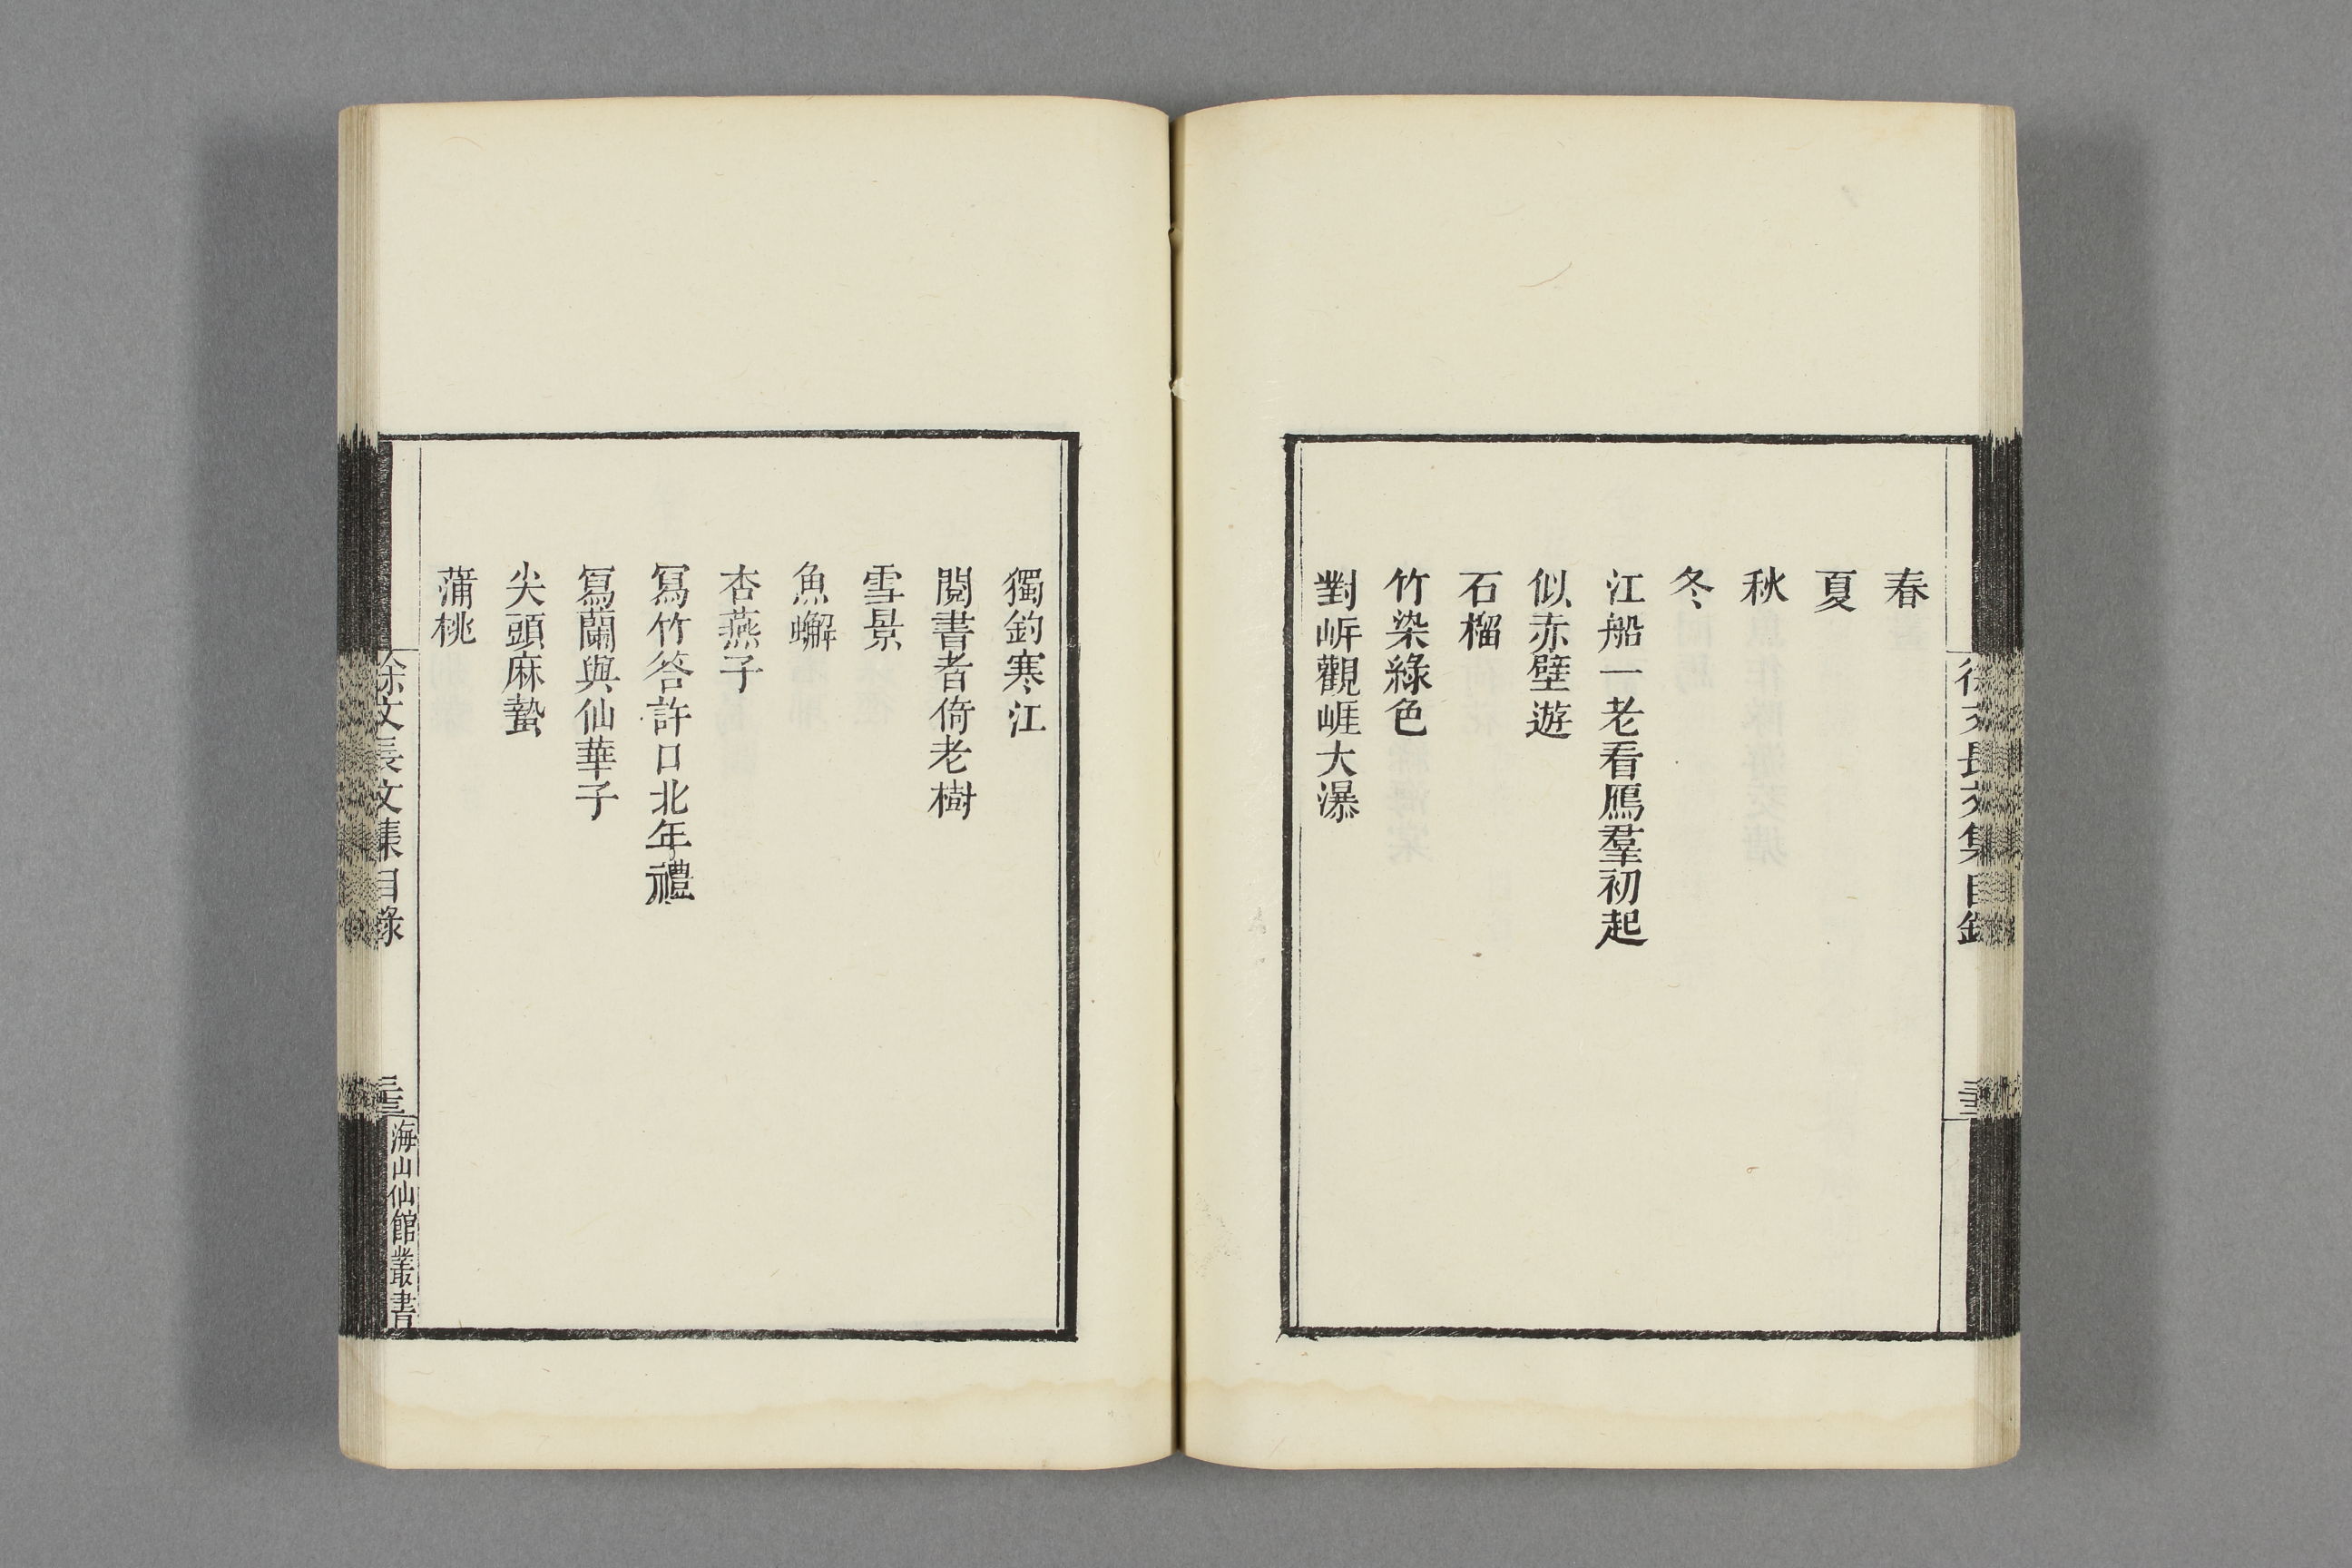 徐文長文集目錄
春
夏
秋
冬
江船一老看鴈羣初起
似赤壁遊
石榴
竹染綠色
對㟁觀崕大瀑
獨釣寒江
閱書者倚老樹
雪景
魚蠏
杏燕子
寫竹答許口北年禮
寫蘭與仙華子
尖頭麻蟄
蒲桃
徐文長文集目錄
海山仙館叢書